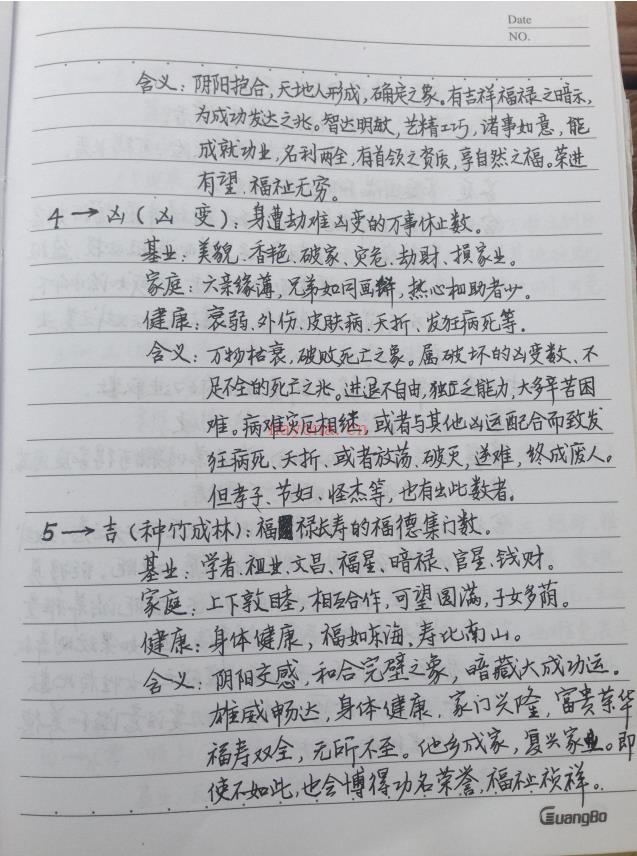 Date
NO.
含义：阴阳抱合，天地人形成，确定之象。有吉祥福禄之暗示，
为成功发达之兆。智达明敏，艺精工巧，诸事如意，能
成就功业，名利两全，有首领之资质，享自然之福。荣进
有望、福祉无穷。
4→凶（凶变）：身遭劫难凶变的万事休止数。
基业：美貌、香艳、破家、灾危、劫财、损家业。
家庭：六亲缘薄，兄弟如同画饼，热心相助者少。
健康：衰弱、外伤、皮肤病、夭折、发狂病死等。
含义：万物枯衰，破败死亡之象。属破坏的凶变数、不
足不全的死亡之兆。进退不自由，独立之能力，大多辛苦困
难。病难灾厄相继，或者与其他凶运配合而致发
狂病死、夭折、或者放荡、破灭，逆难，终成废人。
但孝子、节妇、怪杰等，也有出此数者。
5→吉（种竹成林）：福禄长寿的福德集门数。
基业：学者、祖业、文昌、福星、暗禄、官星、钱财。
家庭：上下敦睦，相互合作，可望圆满，子女多荫。
健康：身体健康，福如东海，寿比南山。
含义：阴阳交感，和合完壁之象，暗藏大成功运。
雄威畅达，身体健康，家门兴隆，富贵荣华
福寿双全，无所不至。他乡成家，复兴家业。即
使不如此，也会博得功名荣誉，福祉祯祥。
GuangBo